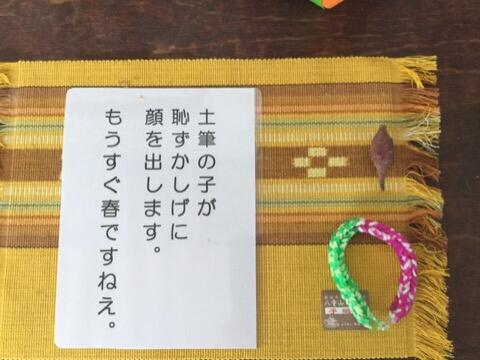 土筆の子が
恥ずかしげに
顔を出します。
もうすぐ春ですねえ。